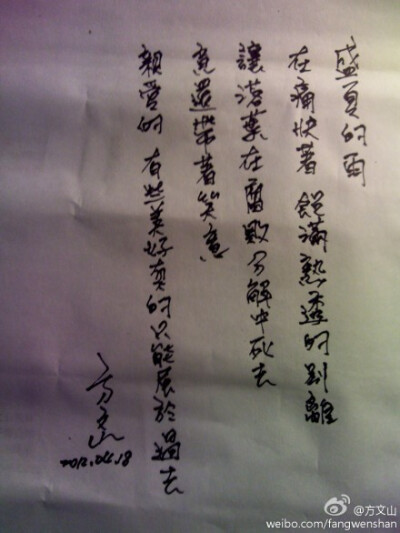 盛夏的雨
在痛快著 飽滿熟透的別離
讓落葉在腐敗分解中死去
竟還帶著笑意
親愛的 有些美好真的只能屬於過去
方文山
2012.04.18
@方文山
weibo.com/fangwenshan